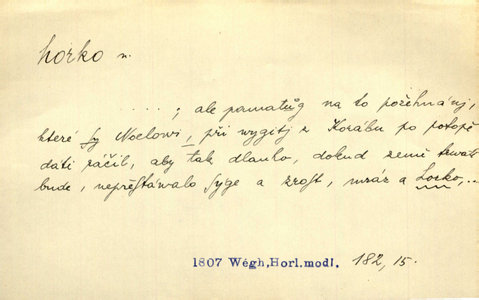 horko n.
....; ale pamatůg na to požehnánj,
které sy Noelowi, při wygitj z Korábu po potopě
dáti ráčil, aby tak dlauho, dokud země trwati
bude, nepřestáwalo syge a zrost, mráz a horko,...
1807 Wégh,Horl.modl. 182, 15.